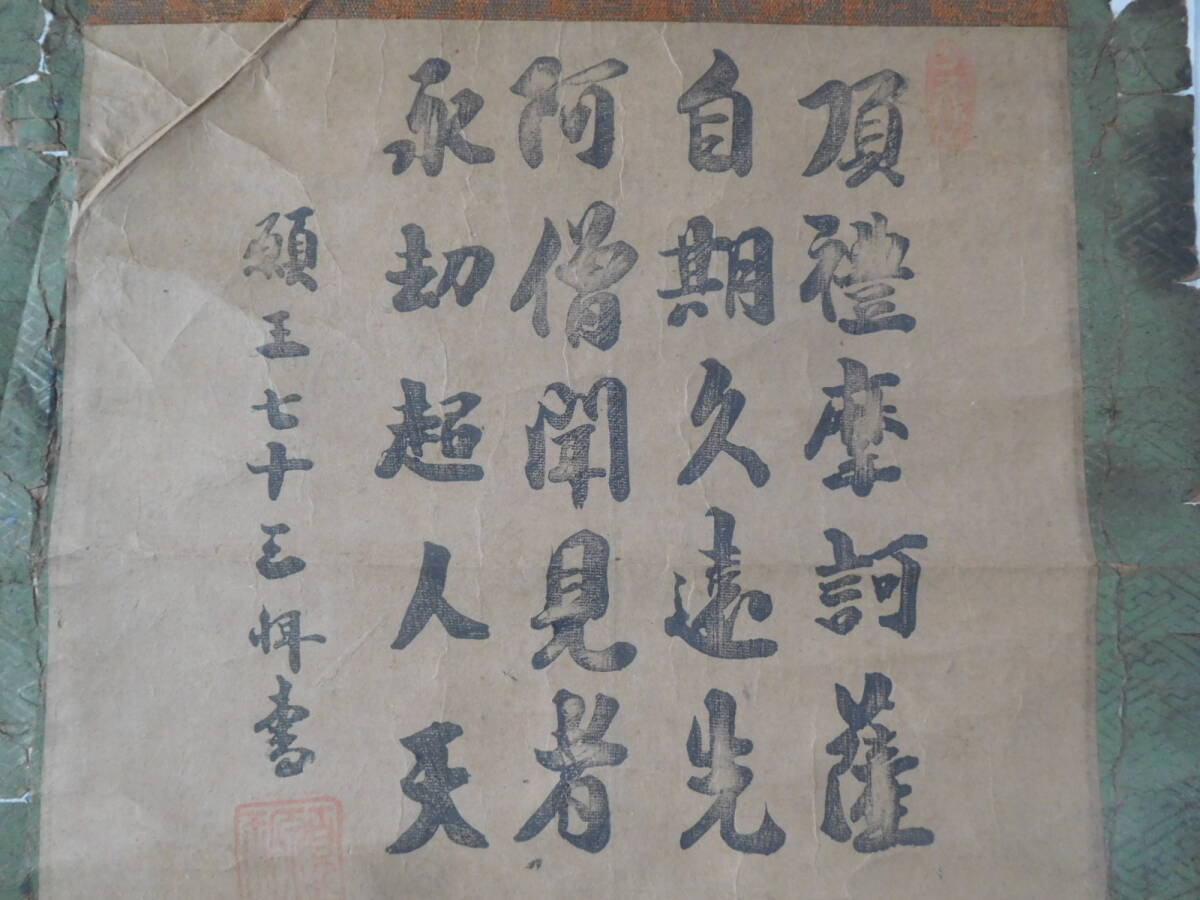 頂禮摩訶薩
自期久遠先
阿僧聞見者
永劫超人天
願王七十三